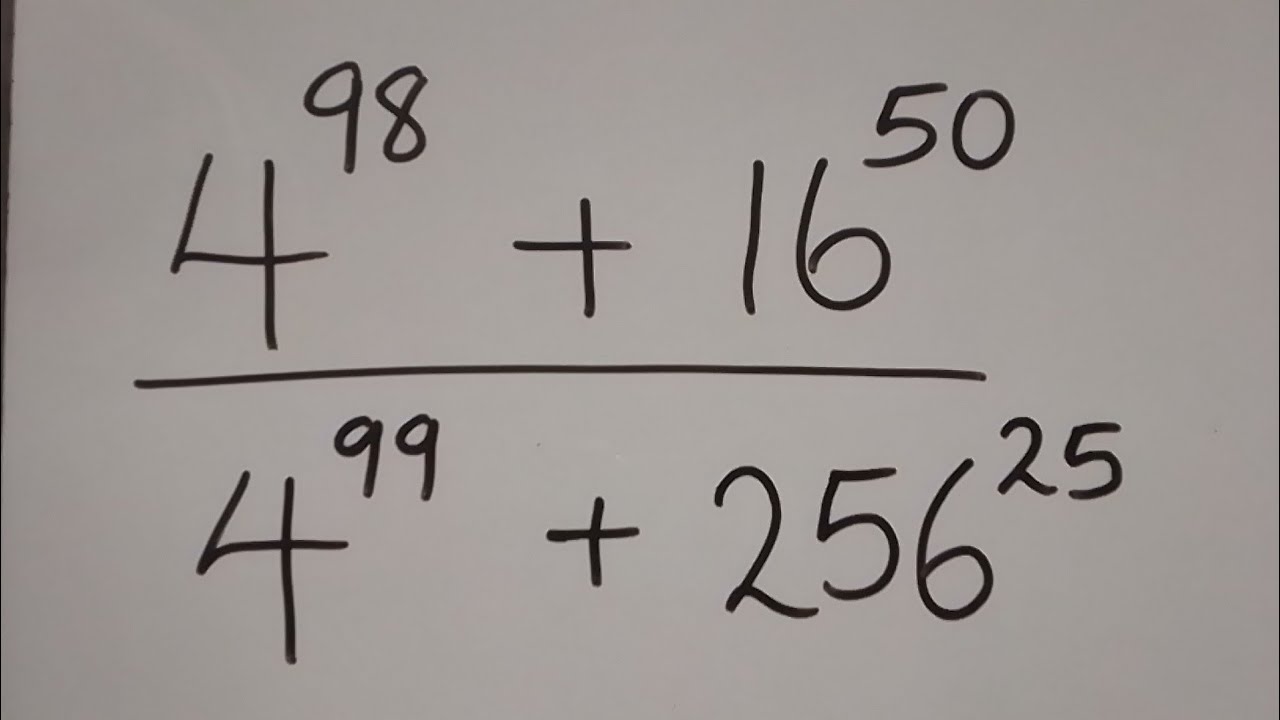 4⁹⁸ + 16⁵⁰
4⁹⁹ + 256²⁵